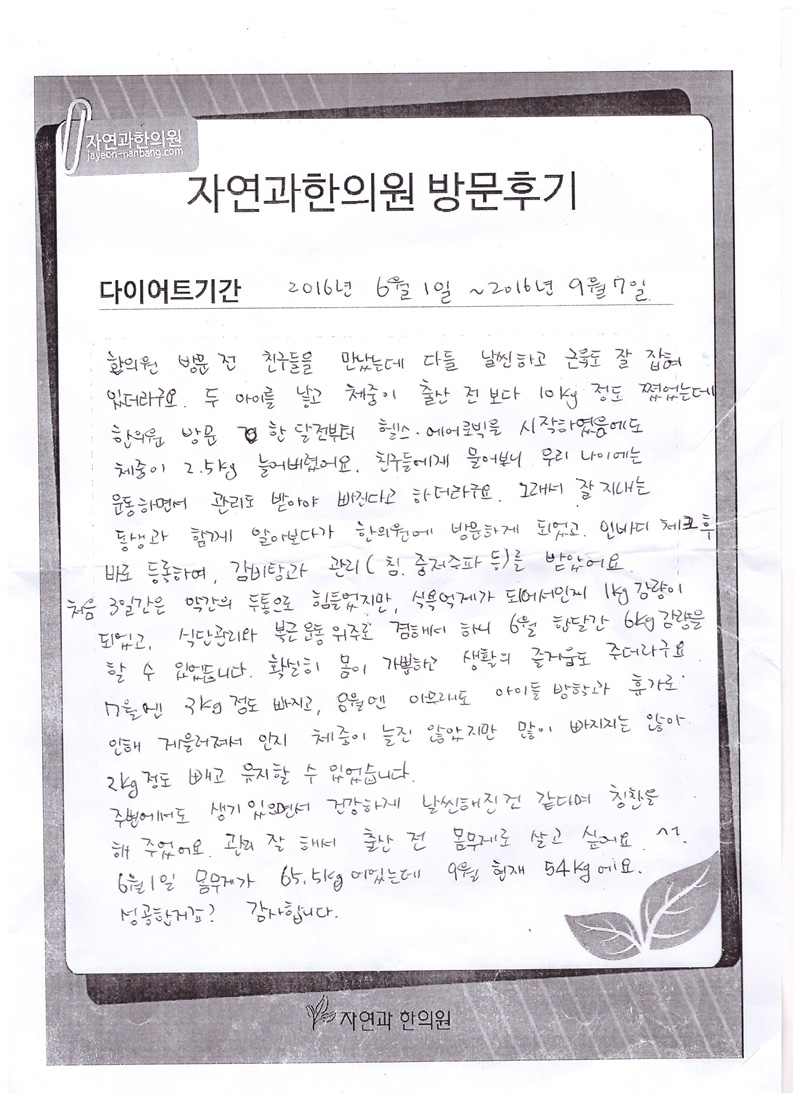 자연과한의원
jayeon-hanbang.com
자연과한의원 방문후기
다이어트기간 2016년 6월 1일 ~2016년 9월 7일
한의원 방문 전 친구들을 만났는데 다들 날씬하고 근육도 잘 잡혀
있더라구요. 두 아이를 낳고 체중이 출산 전 보다 10kg 정도 쪘었는데
한의원 방문 한 달전부터 헬스·에어로빅을 시작하였음에도
체중이 2.5kg 늘어버렸어요. 친구들에게 물어보니 우리 나이에는
운동하면서 관리도 받아야 빠진다고 하더라구요. 그래서 잘 지내는
동생과 함께 알아보다가 한의원에 방문하게 되었고. 인바디 체크 후
바로 등록하여, 감비탕과 관리(침. 중저주파 등)를 받았어요.
처음 3일간은 약간의 두통으로 힘들었지만, 식욕억제가 되어서인지 1kg 감량이
되었고, 식단관리와 복근운동 위주로 겸해서 하니 6월 한달간 6kg 감량을
할 수 있었습니다. 확실히 몸이 가볍하고 생활의 즐거움도 주더라구요
7월엔 3kg 정도 빠지고, 8월엔 아무래도 아이들 방학과 휴가로
인해 게을러져서 인지 체중이 늘진 않았지만 많이 빠지지는 않아
2kg 정도 빼고 유지할 수 있었습니다.
주변에서도 생기있으면서 건강하게 날씬해진건 같다며 칭찬을
해 주었어요. 관리 잘 해서 출산 전 몸무게로 살고 싶어요 ^^.
6월 1일 몸무게가 65.5kg 이었는데 9월 현재 54kg 에요.
성공한거죠? 감사합니다.
자연과 한의원